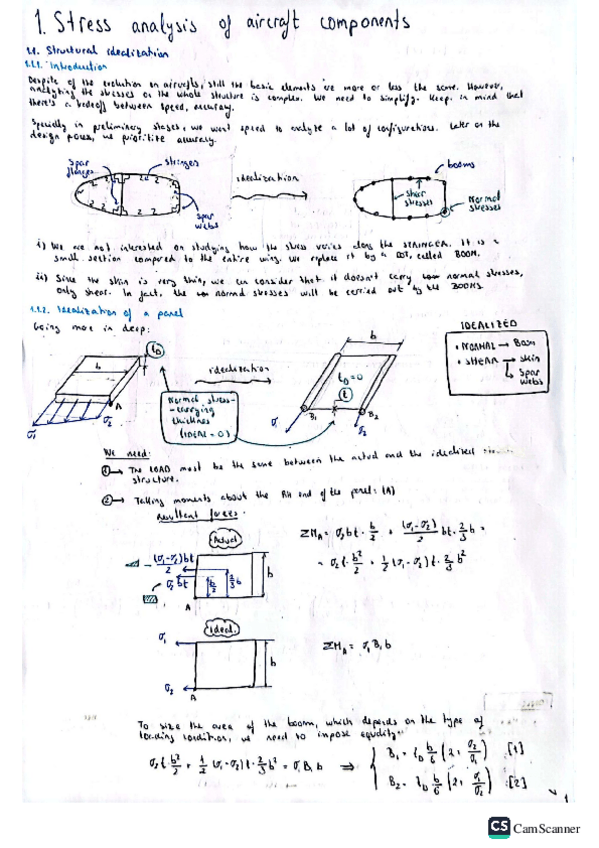 1. Stress analysis of aircraft components
1.1. Structural idealization
1.1.1. Introduction
Despite of the evolution on aircrafts, still the basic elements are more or less the same. However,
analyting the stresses on the whole structure is complex. We need to simplify. Keep in mind that
there's a tradeoff between speed, accuracy.
Specially in preliminary stages, we want speed to analyte a lot of configurations. Later on the
design, we prioritite accuracy.
Spar flanges
stringers
idealization
booms
shear stresses
Normal stresses
Spar webs
i) We are not interested on studying how the stress varies along the STRINGER. It is a
small section compared to the entire wing. We replace it by a DOT, called BOOM.
ii) Since the skin is very thin, we can consider that it doesn't carry normal stresses,
only shear. In fact, the normal stresses will be carried out by the BOOMS.
1.1.2. Idealization of a panel
Going more in deep:
IDEALIZED
• NORMAL → Boom
• SHEAR → skin
↳ Spar webs
b
t_D
idealization
b
t_D = 0
(t)
A
σ1
σ2
Normal stress-
-carrying
thickness
(IDEAL = 0)
B1
B2
σ1
σ2
We need:
① → The LOAD must be the same between the actual and the idealised
structure.
② → Talking moments about the RH end of the panel: (A)
Resultant forces.
Actual
(σ1-σ2)bt / 2
σ2 bt
b/2
2/3 b
b
A
ΣM_A = σ2 bt · b/2 + (σ1-σ2)/2 bt · 2/3 b =
= σ2 t · b²/2 + 1/2 (σ1-σ2) t · 2/3 b²
Ideal.
σ1
σ2
A
b
ΣM_A = σ1 B1 b
To size the area of the boom, which depends on the type of
loading condition, we need to impose equality:
σ2 t b²/2 + 1/2 (σ1-σ2) t · 2/3 b² = σ1 B1 b ⇒
B1 = t_D b/6 (2 + σ2/σ1) [1]
B2 = t_D b/6 (2 + σ1/σ2) [2]
1
CS CamScanner